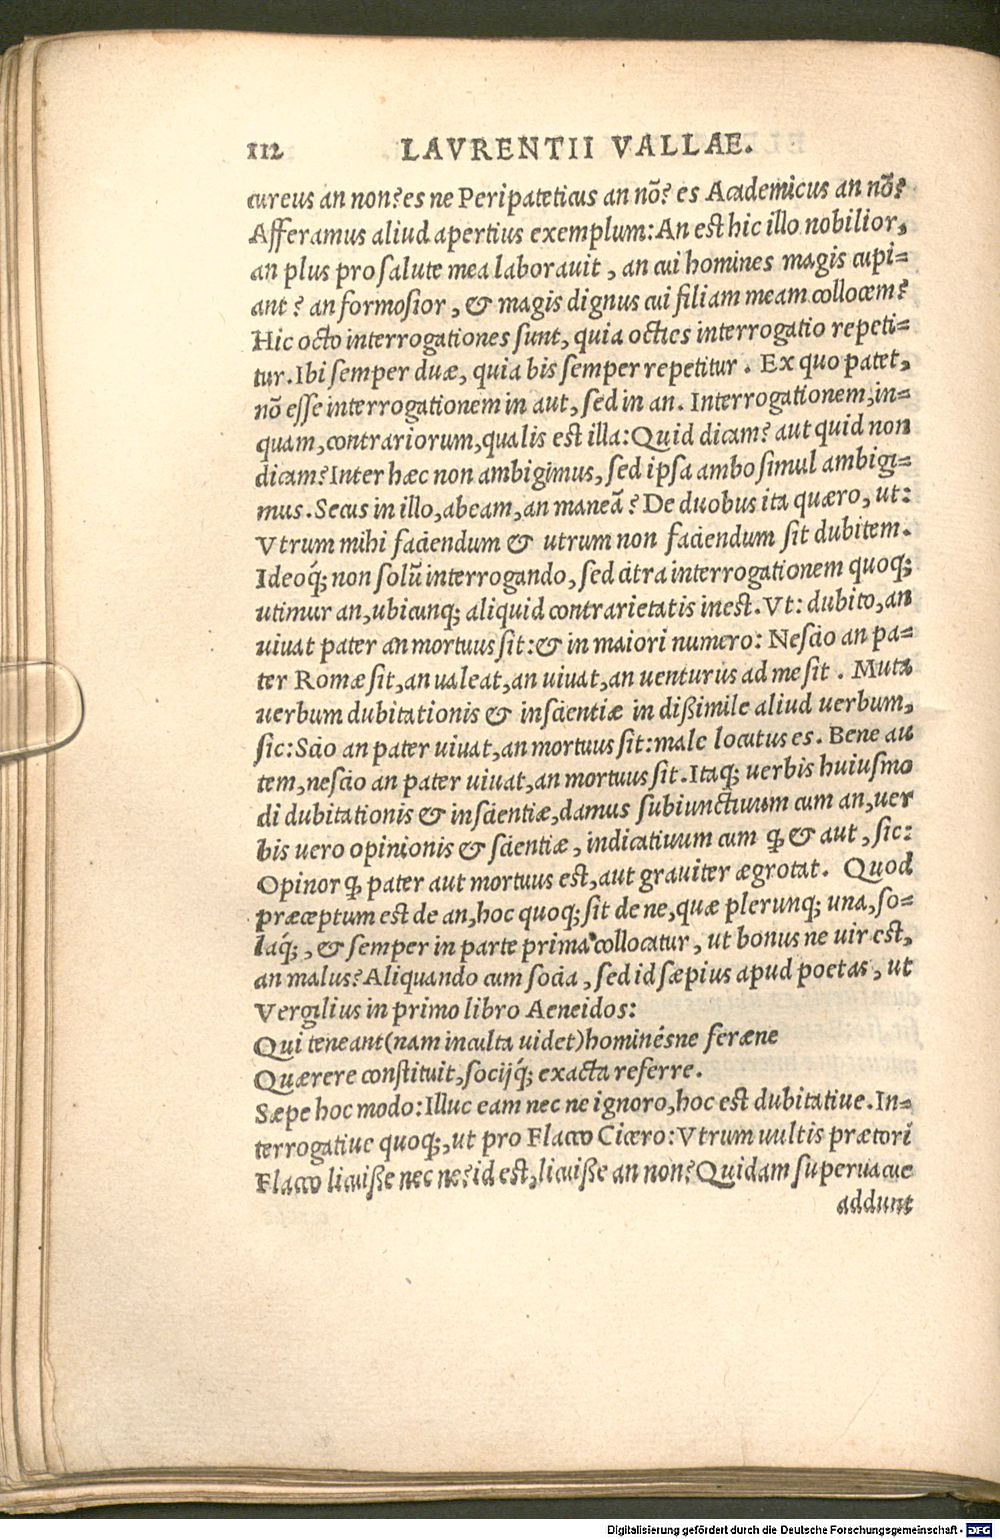 112 LAVRENTII VALLAE.
cureus an non? es ne Peripateticus an nõ? es Academicus an nõ?
Afferamus aliud apertius exemplum: An est hic illo nobilior,
an plus pro salute mea laborauit, an cui homines magis cupi-
ant? an formosior, & magis dignus cui filiam meam collocem?
Hic octo interrogationes sunt, quia octies interrogatio repeti-
tur. Ibi semper duæ, quia bis semper repetitur. Ex quo patet,
nõ esse interrogationem in aut, sed in an. Interrogationem, in-
quam, contrariorum, qualis est illa: Quid dicam? aut quid non
dicam? Inter hæc non ambigimus, sed ipsa ambo simul ambigi-
mus. Secus in illo, abeam, an maneã? De duobus ita quæro, ut:
Vtrum mihi faciendum & utrum non faciendum sit dubitem.
Ideoq́; non solũ interrogando, sed citra interrogationem quoq;
utimur an, ubicunq; aliquid contrarietatis inest. Vt: dubito, an
uiuat pater an mortuus sit: & in maiori numero: Nescio an pa-
ter Romæ sit, an ualeat, an uiuat, an uenturus ad me sit. Muta
uerbum dubitationis & inscientiæ in dißimile aliud uerbum,
sic: Scio an pater uiuat, an mortuus sit: male locutus es. Bene au
tem, nescio an pater uiuat, an mortuus sit. Itaq; uerbis huiusmo
di dubitationis & inscientiæ, damus subiunctiuum cum an, uer
bis uero opinionis & scientiæ, indicatiuum cum ꝙ & aut, sic:
Opinor ꝙ pater aut mortuus est, aut grauiter ægrotat. Quod
præceptum est de an, hoc quoq; sit de ne, quæ plerunq; una, so-
laq́;, & semper in parte prima collocatur, ut bonus ne uir est,
an malus? Aliquando cum socia, sed id sæpius apud poetas, ut
Vergilius in primo libro Aeneidos:
Qui teneant (nam inculta uidet) hominésne feræne
Quærere constituit, socijq́; exacta referre.
Sæpe hoc modo: Illuc eam nec ne ignoro, hoc est dubitatiue. In-
terrogatiue quoq;, ut pro Flacco Cicero: Vtrum uultis prætori
Flacco licuiße nec ne? id est, licuiße an non? Quidam superuacue
addunt
Digitalisierung gefördert durch die Deutsche Forschungsgemeinschaft - DFG